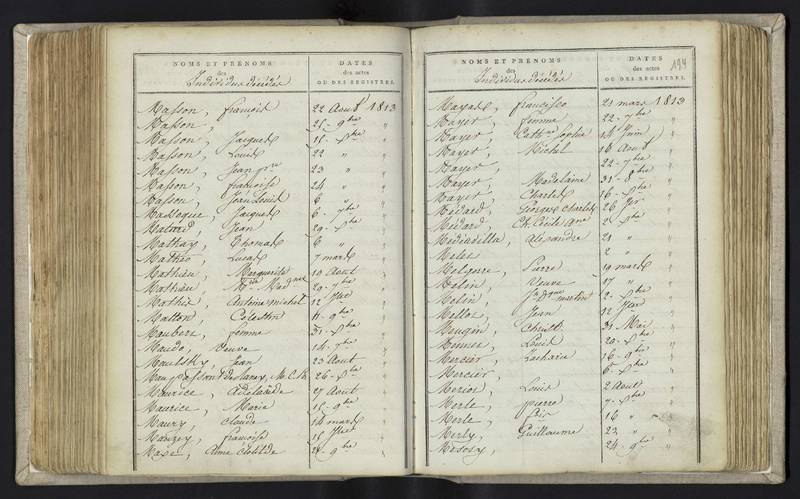 NOMS ET PRÉNOMS
des
Individus décédés
DATES
des actes
OU DES REGISTRES.
Masson, françois 22 Aout 1813
Masson, 25 - 9bre "
Masson, Jacques 15 - Xbre "
Masson, Louis 22 " "
Masson, Jean 23 " "
Masson, françoise 24 " "
Masson, Jean Louis 6 " "
Jacques 6 - 7bre "
Jean 29 - Xbre "
Mathay, Thomas 6 " "
Mathéo, Lucas 7 mars "
Mathieu, Marguerite 19 Aout "
Mathieu, 29 - 7bre "
Mathis, Antoine michel 12
Matton, Célestin 11 - 9bre "
Maubert, femme 31 - Xbre "
Maude, Veuve 14 - 7bre "
Jean 23 Aout "
26 - Xbre "
Maurice, Adelaide 27 Aout "
Maurice, Marie 15 - 9bre "
Maury, Claude 14 mars "
Maugey, françoise 15
Maxe, Anne Clotilde 24 - 9bre "
NOMS ET PRÉNOMS
des
Individus décédés
DATES
des actes
OU DES REGISTRES.
194
francisco 21 mars 1813
Mayer, femme 22 - 7bre "
Mayer, Cathne Sophie 14 Juin "
Mayer, Michel 16 Aout "
Mayer, 22 - 7bre "
Mayer, Madelaine 31 - 8bre "
Mayer, Charles 16 - Xbre "
Médard, Georges Charles 26
Médard, Ch. Cécile 2 - Xbre "
Alexandre 21 " "
2 " "
Pierre 19 mars "
Melin, Veuve 17 " "
Melin, 12 - Xbre "
Mellot, Jean 12
Mengin, 31 Mai "
Louis 20 - Xbre "
Mercier, Zacharie 16 - 9bre "
Mercier, 6 - Xbre "
Louis 2 Aout "
Merle, pierre 7 - Xbre "
Merle, 16 " "
Merly, Guillaume 23 " "
24 - 9bre "